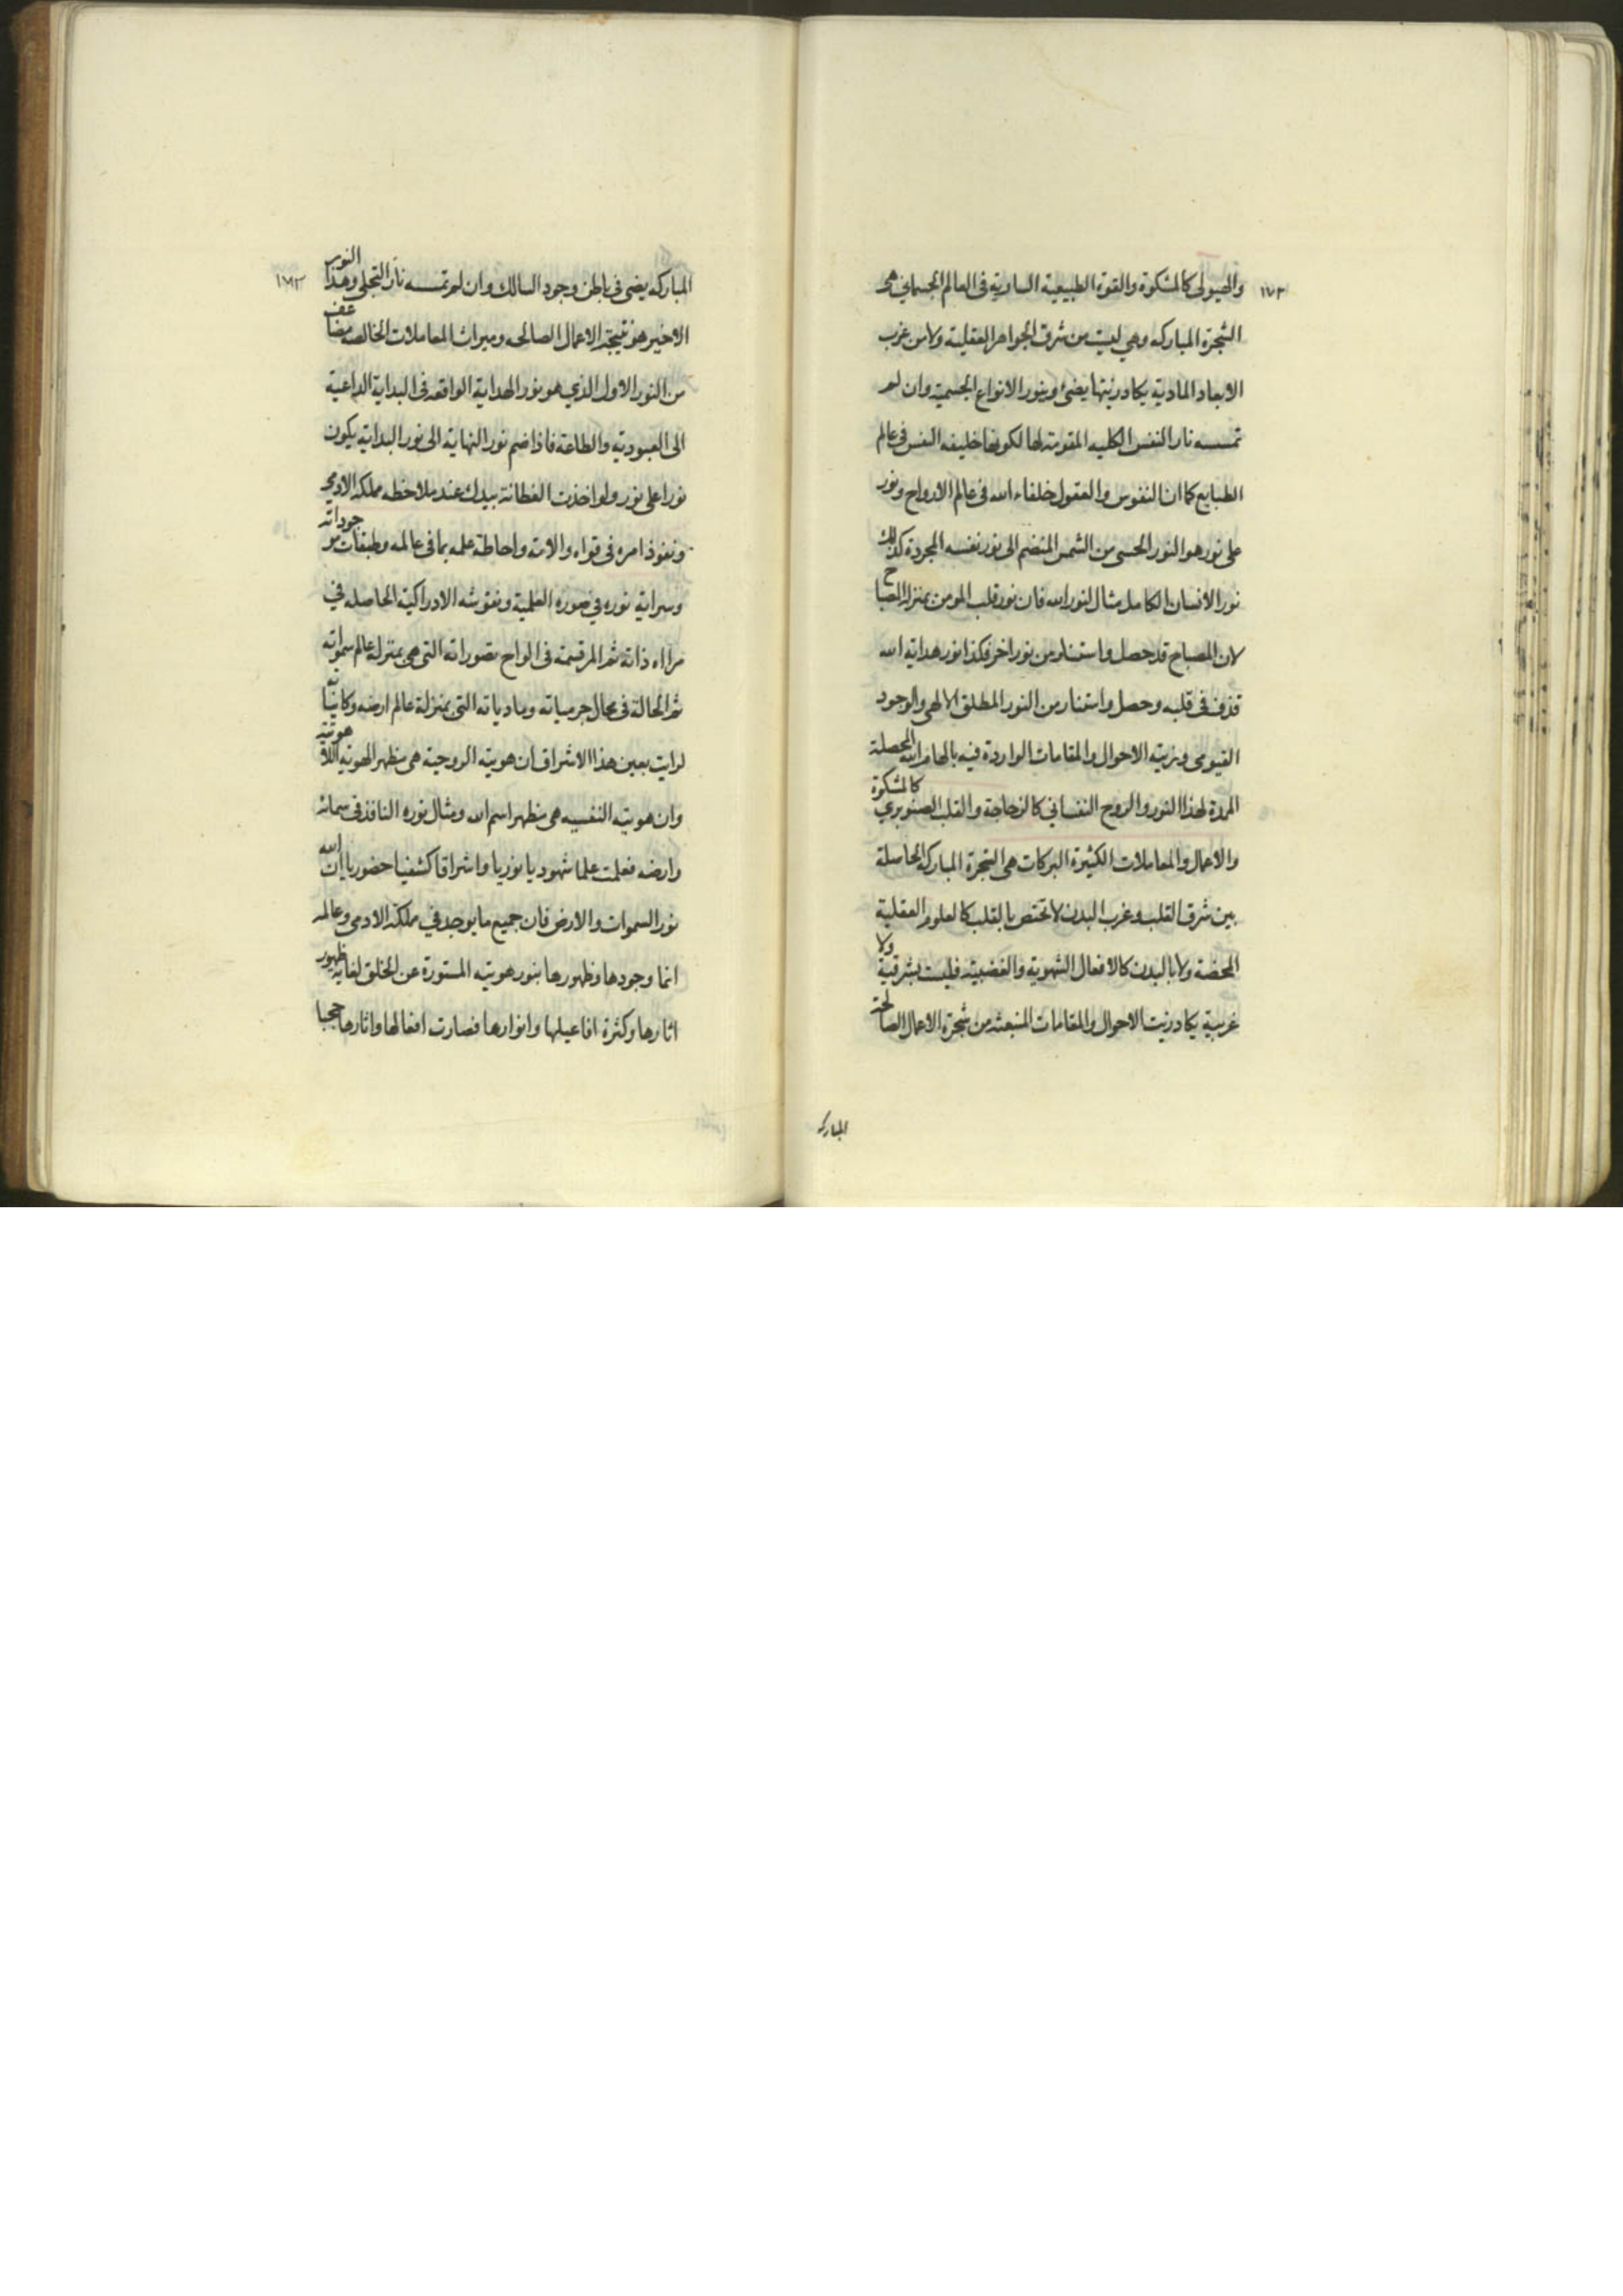 ١٧٢
والهيولى كالمشكوة والقوة الطبيعية السارية فى العالم الجسماني هى
الشجرة المباركه وهي ليست من شرق الجواهر العقلية ولا من غرب
الابعاد المادية يكاد زيتها يضئ وينور الانواع الجسمية وان لم
تمسسه نار النفس الكليه المقومة لها لكونها خليفه النفس فى عالم
الطبايع كما ان النفوس والعقول خلفاء الله فى عالم الارواح ونور
على نور هو النور الحسى من الشمس المنضم الى نور نفسه المجردة كذلك
نور الانسان الكامل مثال لنور الله فان نور قلب المومن بمنزلة المصباح
لان المصباح قد حصل واستنار من نور اخر فكذا نور هداية الله
قذف فى قلبه وحصل واستنار من النور المطلق الالهى والوجود
القيومى وزيته الاحوال والمقامات الواردة فيه بالهام الله المحصلة
الممدة لهذا النور والروح النفساني كالزجاجة والقلب الصنوبري كالمشكوة
والاعمال والمعاملات الكثيرة البركات هى الشجرة المباركة الحاصلة
بين شرق القلب وغرب البدن لا تختص بالقلب كالعلوم العقلية
المحضة ولا بالبدن كالافعال الشهوية والغضبيه فليست بشرقية ولا
غربية يكاد زيت الاحوال والمقامات المنبعثه من شجرة الاعمال الصالحة
المباركه
المباركه يضى فى باطن وجود السالك وان لم تمسسه نار التجلى وهذا النور
الاخير هو نتيجة الاعمال الصالحه وميراث المعاملات الخالصه مضاعف
من النور الاول الذي هو نور الهداية الواقعه فى البداية الداعية
الى العبودية والطاعة فاذا ضم نور النهاية الى نور البداية يكون
نورا على نور ولو اخذت الفطانة بيدك عند ملاحظه مملكه الادمى
ونفوذ امره فى قواه والاته واحاطة علمه بما فى عالمه وطبقات موجوداته
وسراية نوره في صوره العلمية ونقوشه الادراكية الحاصله في
مراة ذاته ثم المرتسمة فى الواح تصوراته التى هى بمنزلة عالم سمواته
ثم الحالة فى محال جرمياته ومادياته التى بمنزلة عالم ارضه وكايناته
لرايت بعين هذا الاشراق ان هويته الروحية هى مظهر الهوية اللاهوتية
وان هويته النفسيه هى مظهر اسم الله ومثال نوره النافذ فى سمائه
وارضه فعلمت علما شهوديا نوريا واشراقا كشفيا حضوريا ان الله
نور السموات والارض فان جميع ما يوجد في مملكة الادمى وعالمه
انما وجودها وظهورها بنور هويته المستورة عن الخلق لغاية ظهور
اثارها وكثرة افاعيلها وانوارها فصارت افعالها واثارها حجبا